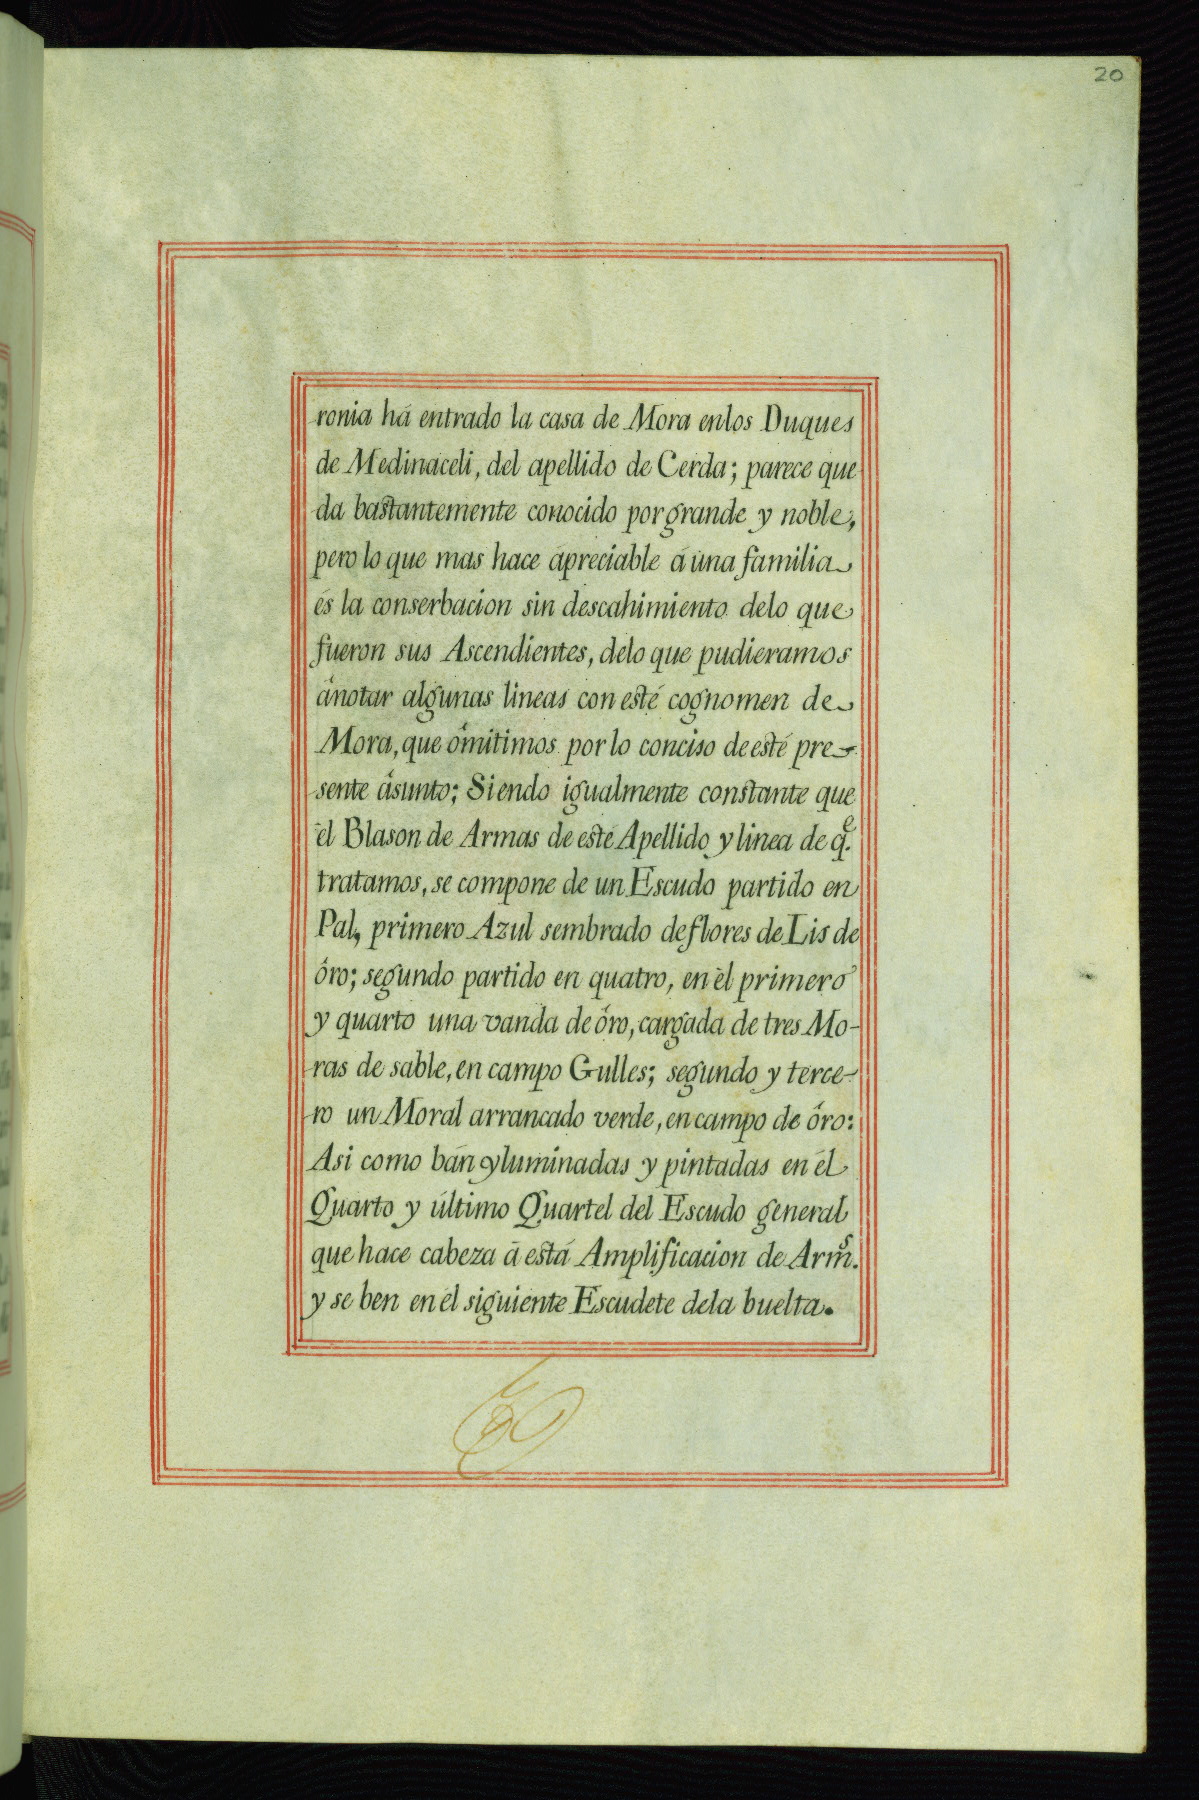 20
ronia há entrado la casa de Mora enlos Duques
de Medinaceli, del apellido de Cerda; parece que
da bastantemente conocido por grande y noble,
pero lo que mas hace ápreciable á una familia
és la conserbacion sin descahimiento delo que
fueron sus Ascendientes, delo que pudieramos
ánotar algunas lineas con esté cognomen de
Mora, que ómitimos por lo conciso de esté pre-
sente ásunto; Siendo igualmente constante que
él Blason de Armas de esté Apellido y linea de q.e
tratamos, se compone de un Escudo partido en
Pal, primero Azul sembrado de flores de Lis de
óro; segundo partido en quatro, en él primero
y quarto una vanda de óro, cargada de tres Mo-
ras de sable, en campo Gulles; segundo y terce-
ro un Moral arrancado verde, en campo de óro:
Asi como bán yluminadas y pintadas en él
Quarto y último Quartel del Escudo general
que hace cabeza á está Amplificacion de Arm.s
y se ben en él siguiente Escudete dela buelta.